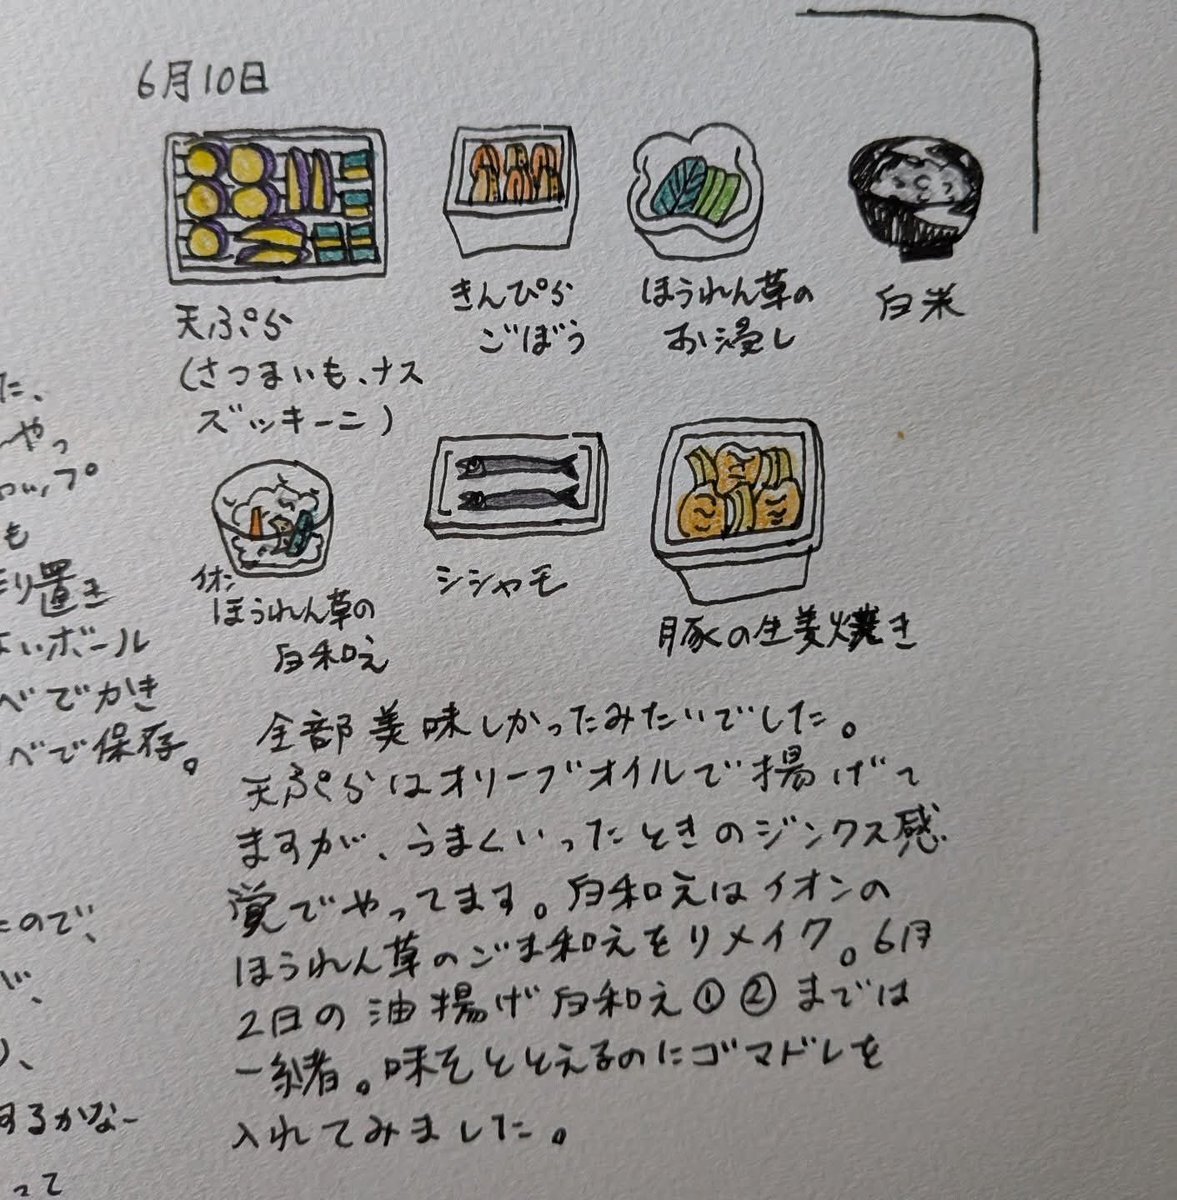 6月10日
天ぷら
(さつまいも、ナス
ズッキーニ)
きんぴら
ごぼう
ほうれん草の
お浸し
白米
イオン
ほうれん草の
白和え
シシャモ
豚の生姜焼き
全部美味しかったみたいでした。
天ぷらはオリーブオイルで揚げて
ますが、うまくいったときのジンクス感
覚でやってます。白和えはイオンの
ほうれん草のごま和えをリメイク。6月
2日の油揚げ白和え①②までは
一緒。味をととえるのにゴマドレを
入れてみました。
た、
やっ
ップ
も
り置き
いボール
べでかき
べで保存。
ので、
が、
、
するかなー
って